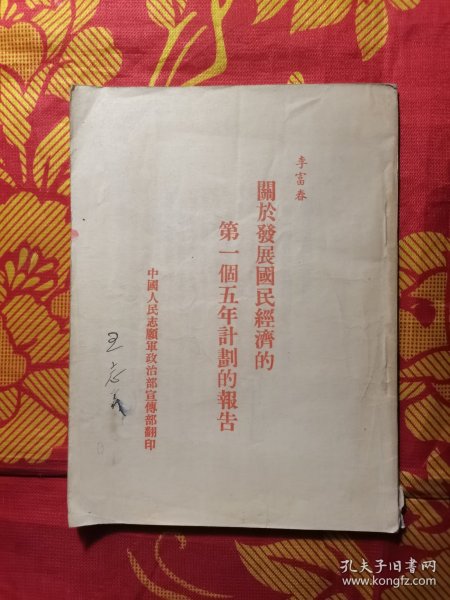 李富春
關於發展國民經濟的
第一個五年計劃的報告
中國人民志願軍政治部宣傳部翻印
王志
孔夫子旧书网
www.kongfz.com